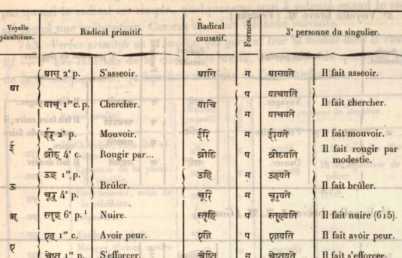 Voyelle pénultième. Radical primitif. Radical causatif. Formes. 3ᵉ personne du singulier.
आस् 2ᵉ p. S'asseoir. आसि म आसयते Il fait asseoir.
आ
याच् 1ʳᵉ c. p. Chercher. याचि प याचयति Il fait chercher.
म याचयते
ईर् 2ᵉ p. Mouvoir. ईरि म ईरयते Il fait mouvoir.
ई
4ᵉ c. Rougir par... प Il fait rougir par modestie.
ऊह् 1ʳᵉ p. ऊहि म ऊहयते
ऊ Brûler. Il fait brûler.
चूर् 4ᵉ p. चूरि म चूरयते
ऋ 6ᵉ p. ¹ Nuire. प Il fait nuire (615).
1ʳᵉ c. Avoir peur. प Il fait avoir peur.
ए
1ʳᵉ p. S'efforcer. म Il fait s'efforcer.